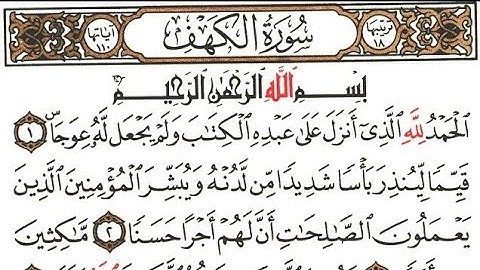 ترتيبها ١٨ سُورَةُ الكَهْفِ آياتها ١١٠
بِسْمِ اللَّهِ الرَّحْمَٰنِ الرَّحِيمِ
الْحَمْدُ لِلَّهِ الَّذِي أَنزَلَ عَلَىٰ عَبْدِهِ الْكِتَابَ وَلَمْ يَجْعَل لَّهُ عِوَجًا ۜ ١
قَيِّمًا لِّيُنذِرَ بَأْسًا شَدِيدًا مِّن لَّدُنْهُ وَيُبَشِّرَ الْمُؤْمِنِينَ الَّذِينَ
يَعْمَلُونَ الصَّالِحَاتِ أَنَّ لَهُمْ أَجْرًا حَسَنًا ٢ مَّاكِثِينَ